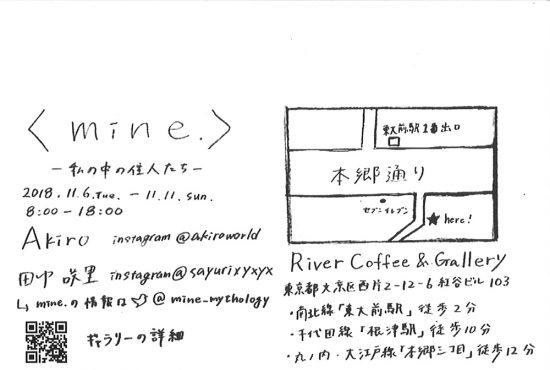 〈mine.〉
－私の中の住人たち－
2018.11.6.Tue. － 11.11.sun.
8:00－18:00
Akiro instagram @akiroworld
田中 咲里 instagram@sayurixyxyx
↳ mine.の情報は @mine_mythology
ギャラリーの詳細
東大前駅1番出口
本郷通り
セブンイレブン
★here!
River Coffee & Gallery
東京都文京区西片2-12-6 紅谷ビル103
・南北線「東大前駅」徒歩2分
・千代田線「根津駅」徒歩10分
・丸ノ内・大江戸線「本郷三丁目」徒歩12分